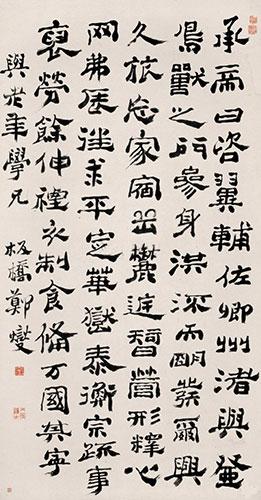 承帝曰咨翼輔佐卿州渚與登
鳥獸之門參身洪流而明發爾興
久旅忘家宿岳麓庭智營形釋心
网弗辰往求平定華嶽泰衡宗疏事
裒勞餘伸禋衣制食備万國其寧
與老年學兄 板橋鄭燮